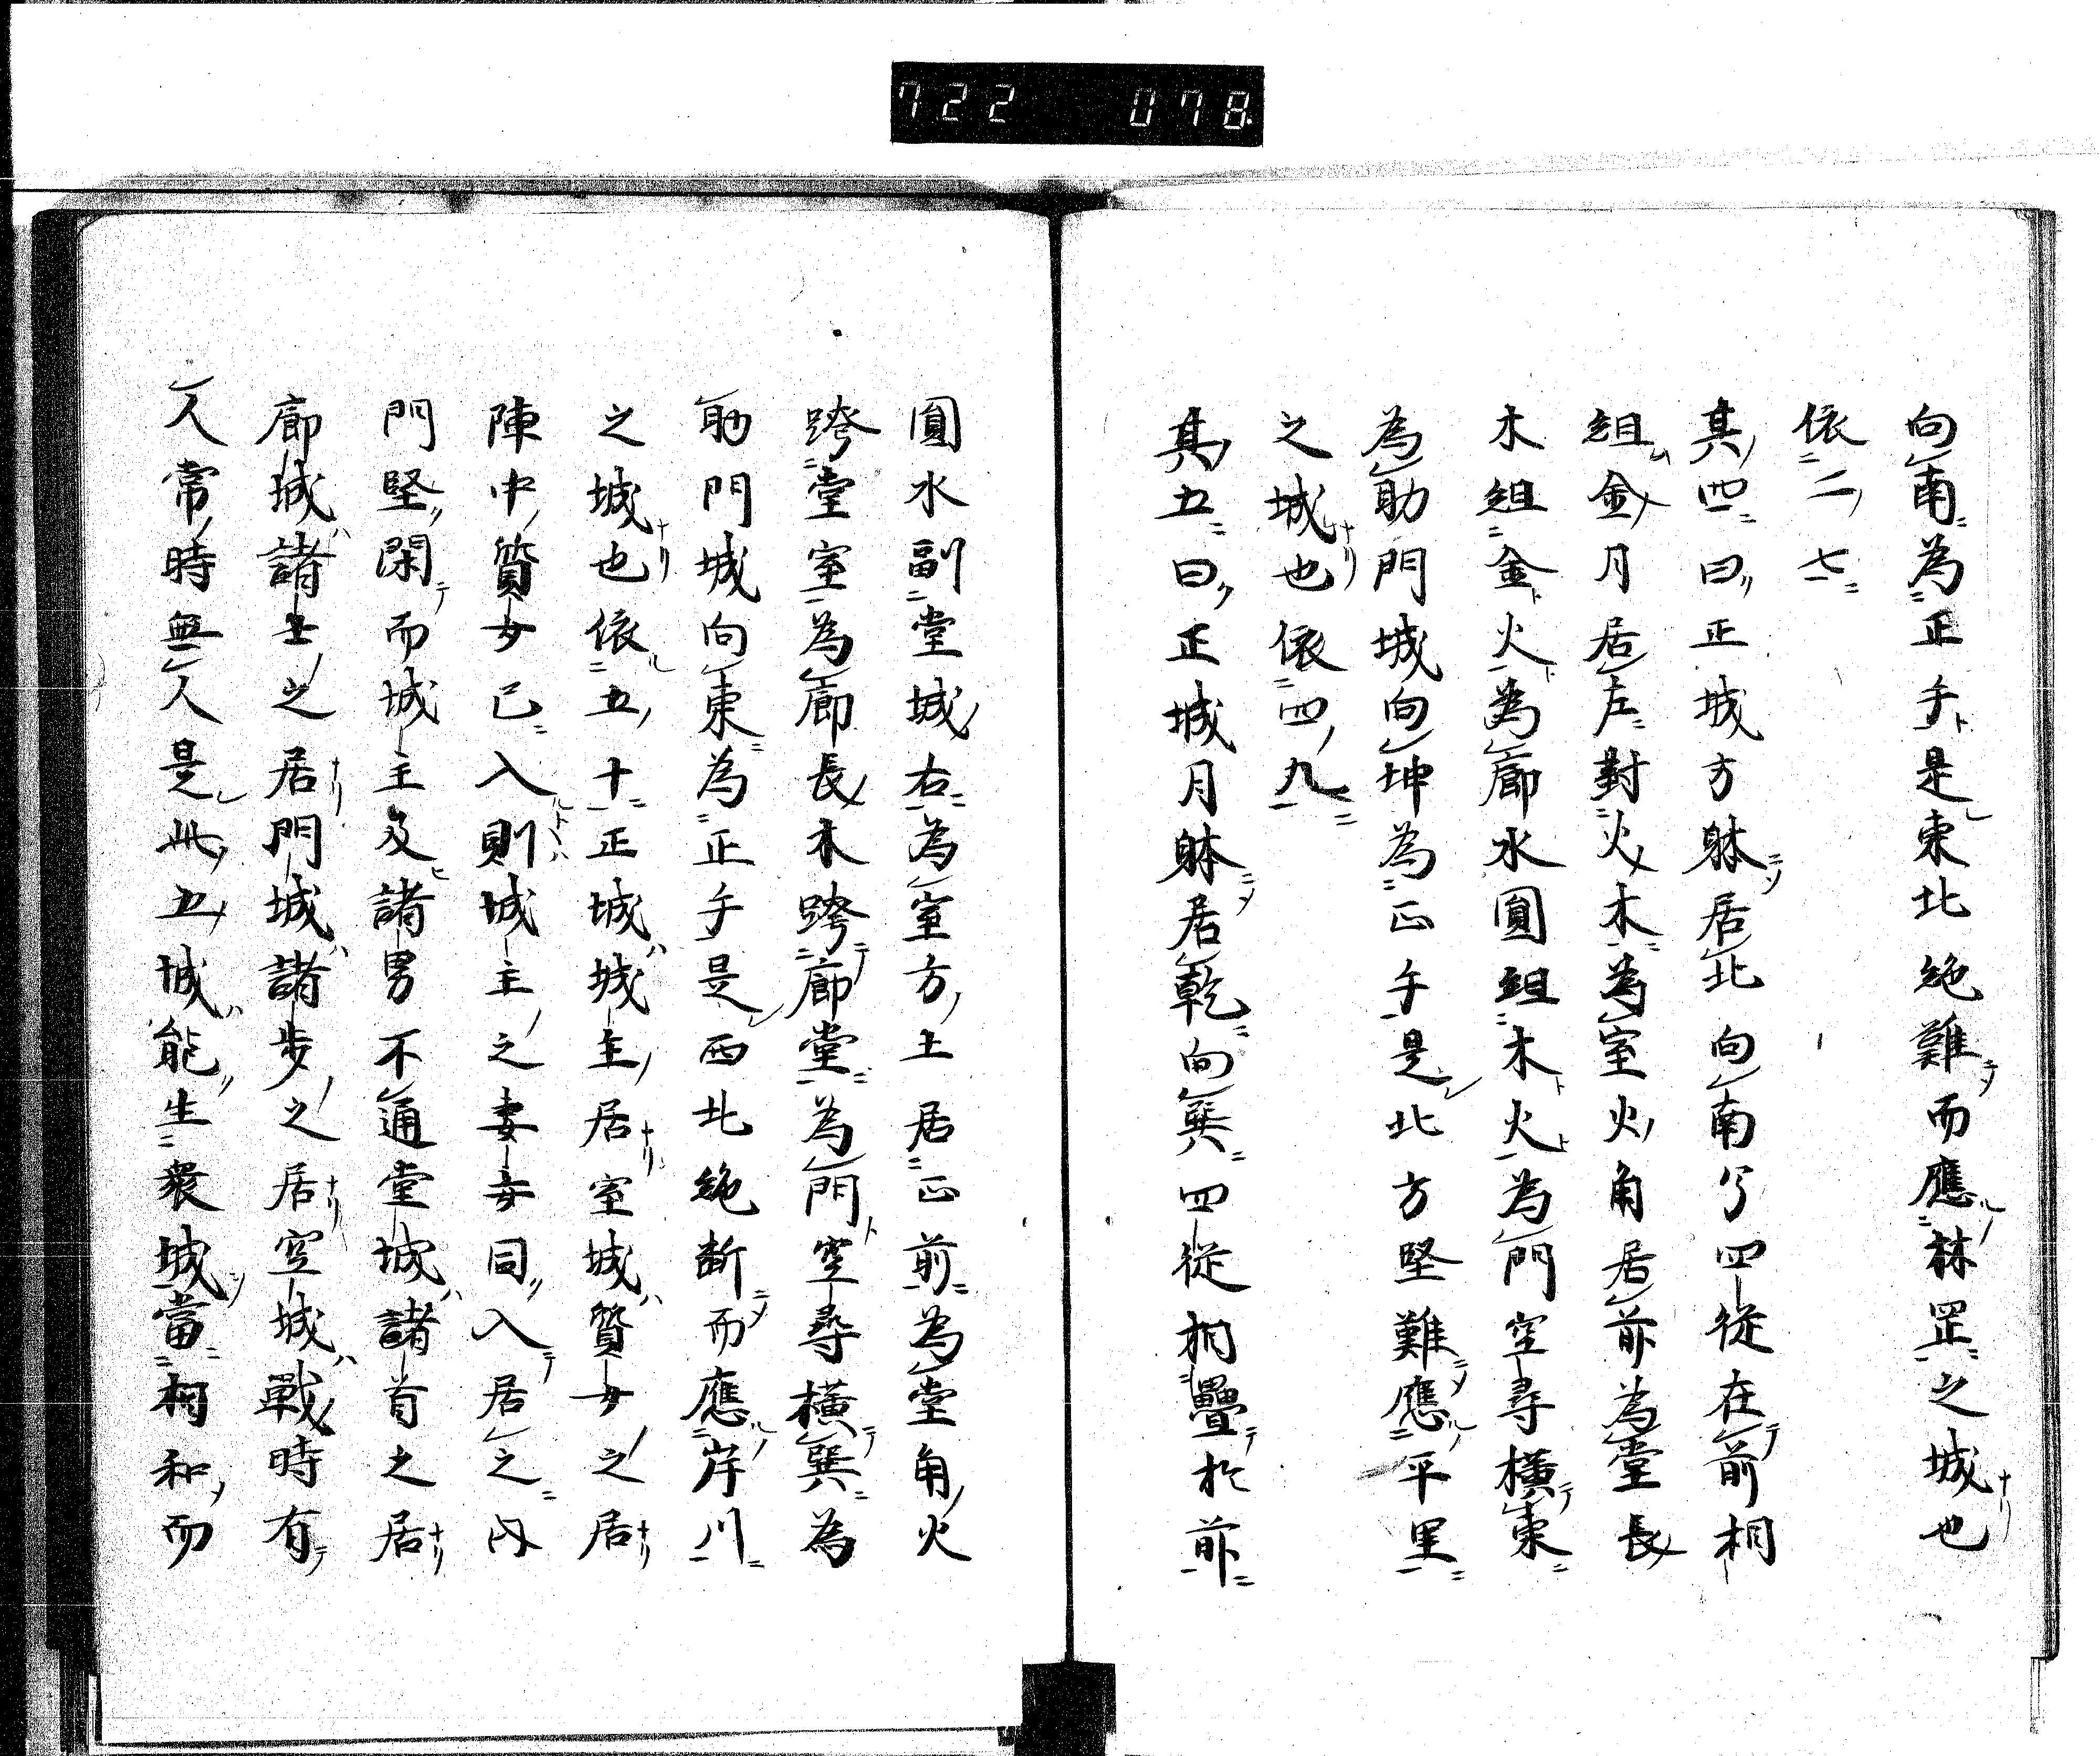 722 078
向南為正手是東北絶難而應林罡之城也
依二七
其四曰正城方躰居北向南兮四從在前相
組金月居左對火木為室火角居前為堂長
木組金火為廊水圓組木火為門空尋橫東
為助門城向坤為正手是北方堅難應平里
之城也依四九
其五曰正城月躰居乾向巽四從相疊於前
圓水副堂城右為室方土居正前為堂角火
跨堂室為廊長木跨廊堂為門空尋橫巽為
助門城向東為正手是西北絶断而應岸川
之城也依五十正城城主居室城質女之居
陣中質女已入則城主之妻妾同入居之内
門堅閑而城主及諸男不通堂城諸首之居
廊城諸士之居門城諸歩之居空城戰時有
人常時無人是此五城能生衆城當相和而